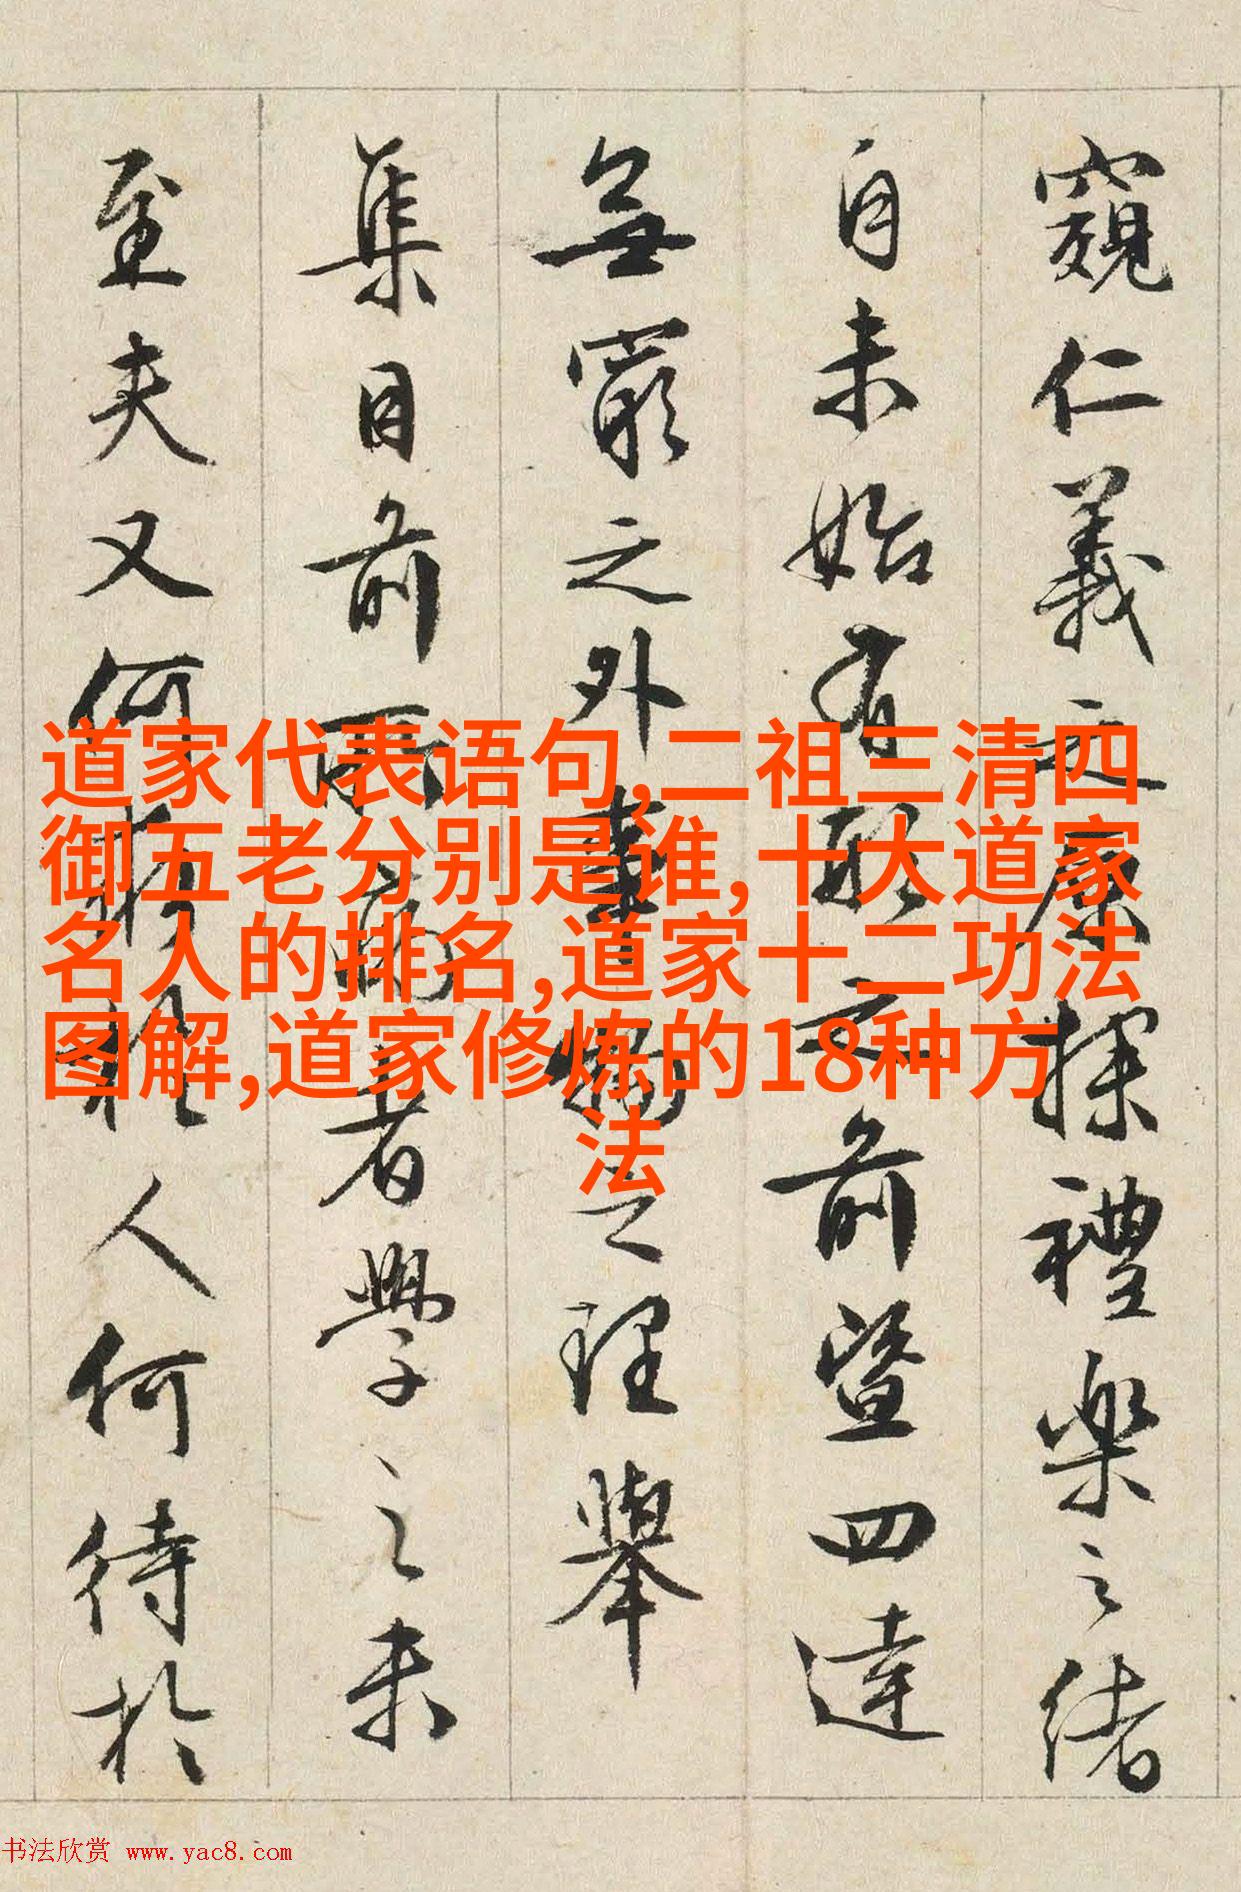 窺仁義之原探禮樂之緒
自未始有形之前暨四達
無窮之外事物之理舉
集目前所病者學之未
至夫又何求於人何待於
道家代表语句,二祖三清四
御五老分别是谁,十大道家
名人的排名,道家十二功法
图解,道家修炼的18种方
法
书法欣赏 www.yac8.com